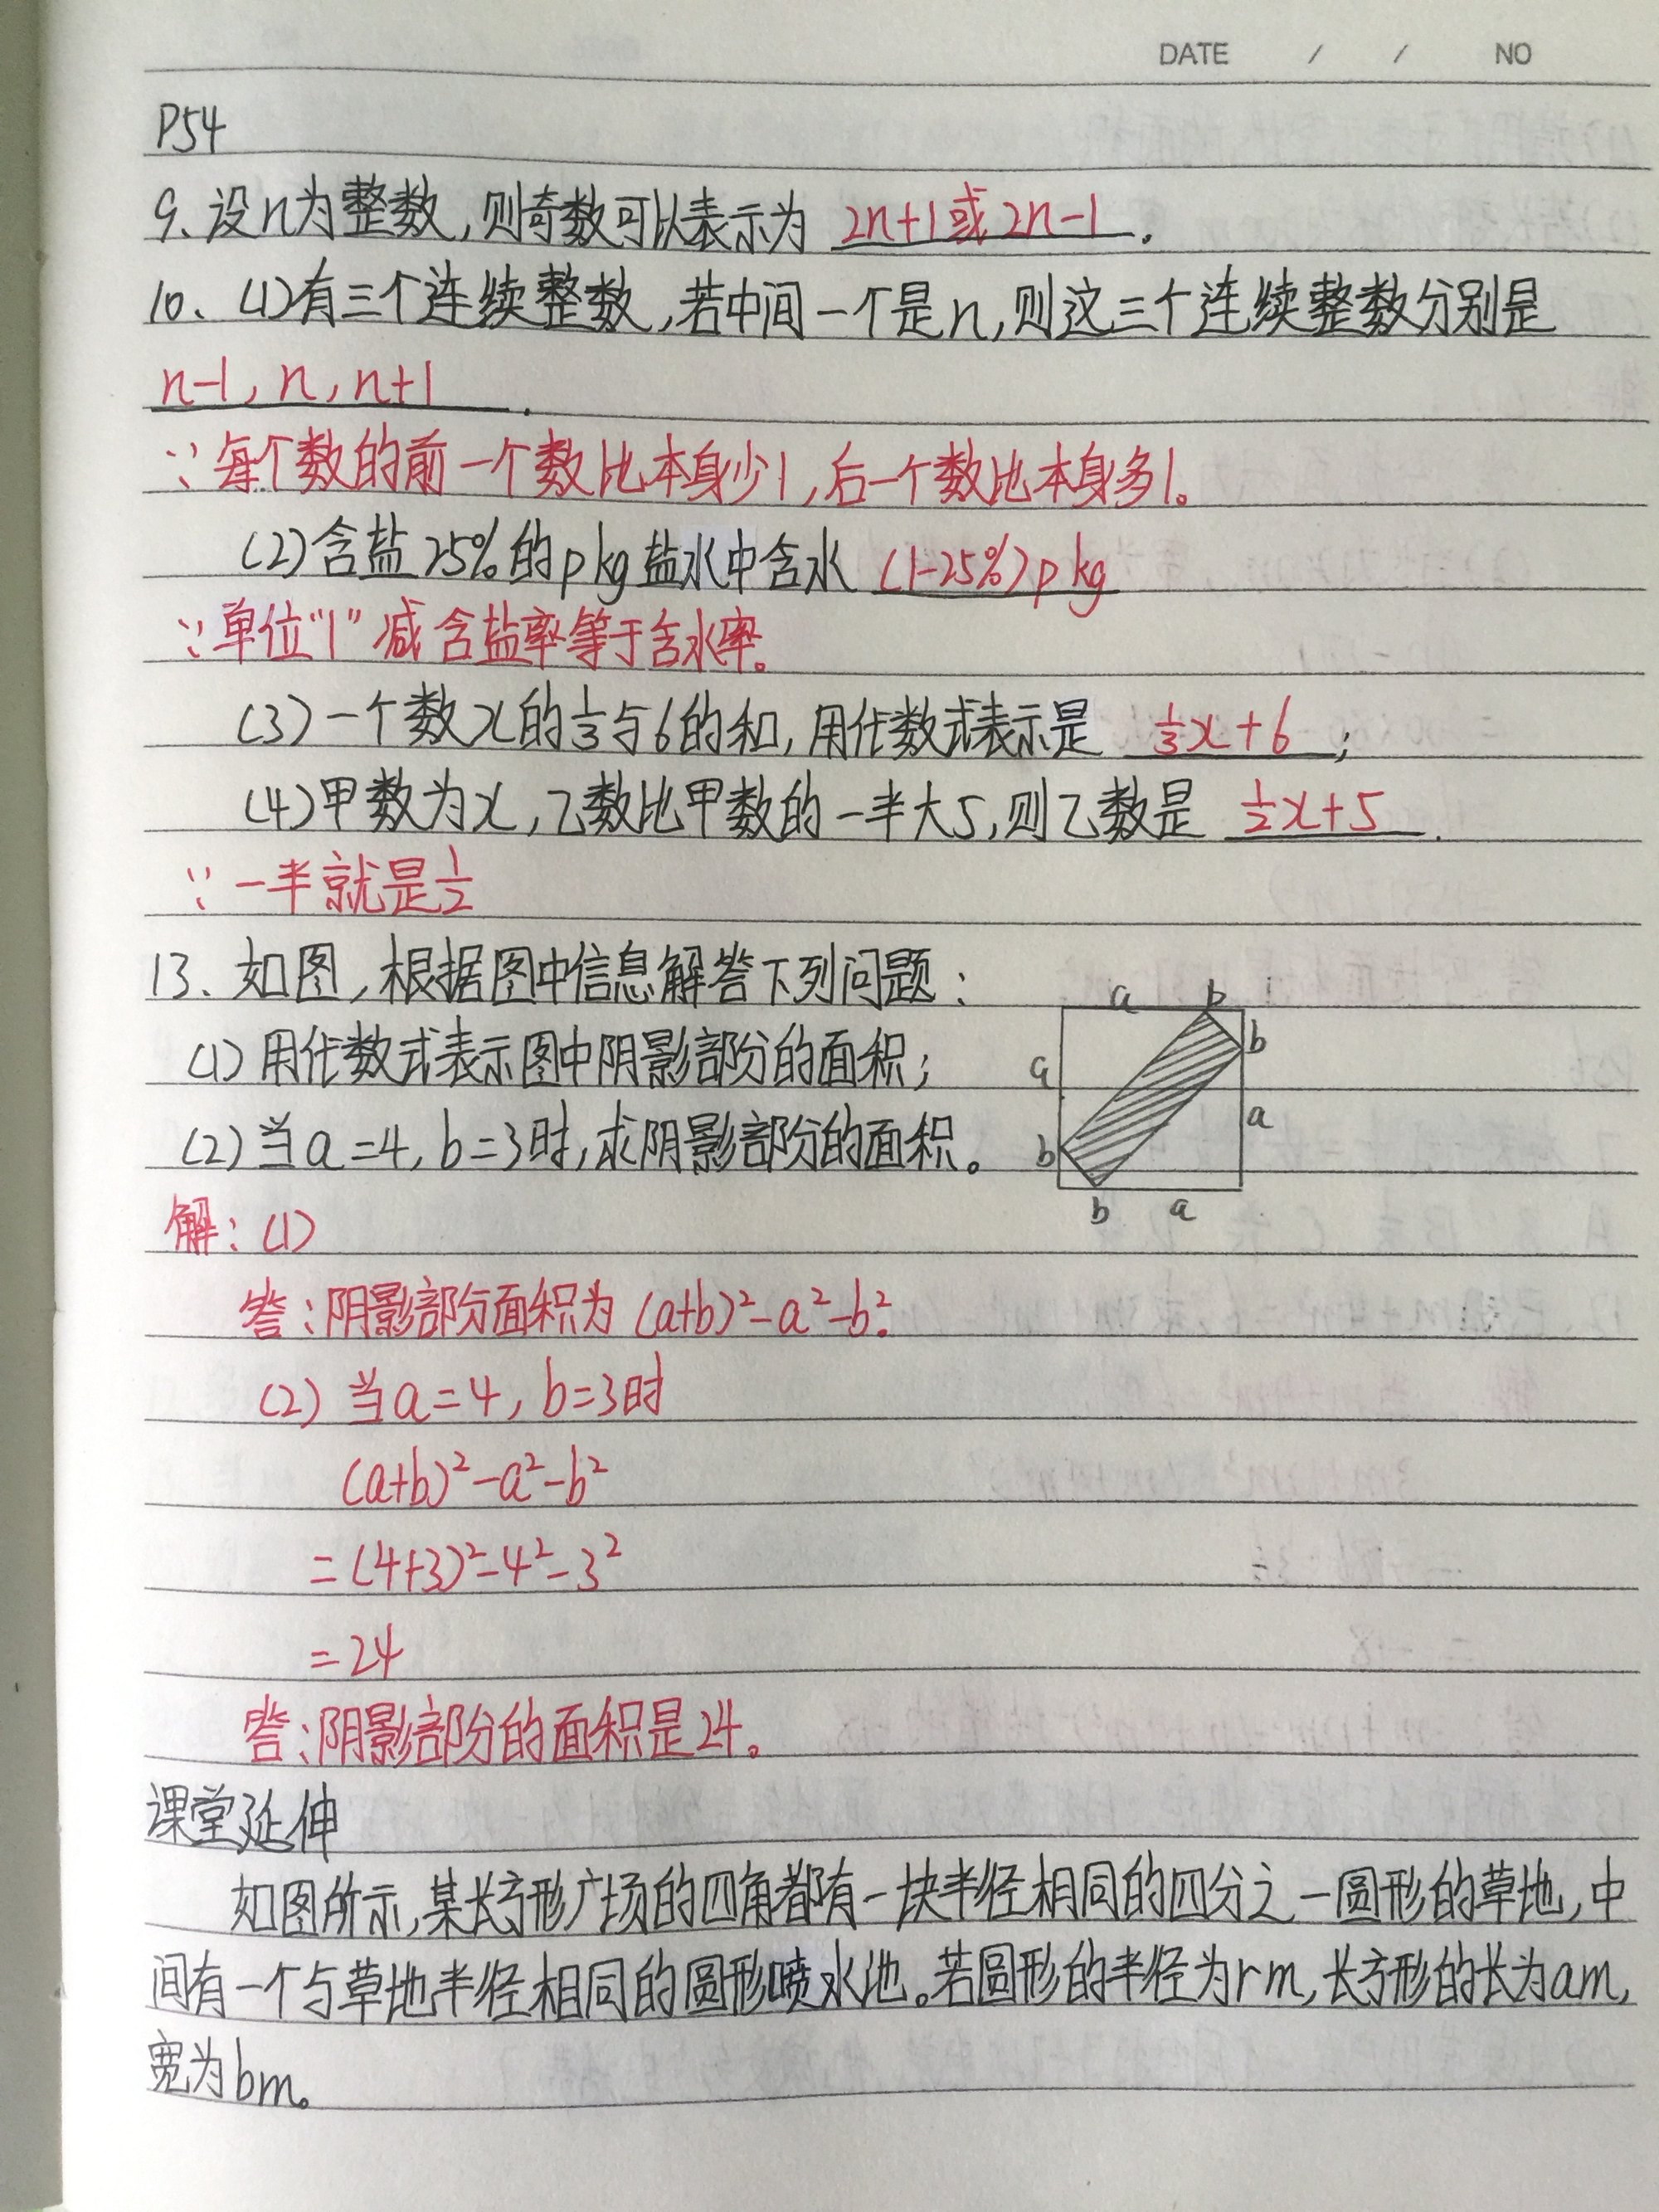 DATE / / NO
P54
9、设n为整数,则奇数可以表示为 2n+1或2n-1.
10、(1)有三个连续整数,若中间一个是n,则这三个连续整数分别是
n-1, n, n+1.
∵每个数的前一个数比本身少1,后一个数比本身多1。
(2)含盐25%的pkg盐水中含水 (1-25%)pkg
∵单位"1"减含盐率等于含水率。
(3)一个数x的1/3与6的和,用代数式表示是 1/3x+6;
(4)甲数为x,乙数比甲数的一半大5,则乙数是 1/2x+5.
∵一半就是1/2
13、如图,根据图中信息解答下列问题:
(1)用代数式表示图中阴影部分的面积;
(2)当a=4,b=3时,求阴影部分的面积。
a b
b
a
a
b
b a
解:(1)
答:阴影部分面积为(a+b)²-a²-b².
(2)当a=4,b=3时
(a+b)²-a²-b²
=(4+3)²-4²-3²
=24
答:阴影部分的面积是24。
课堂延伸
如图所示,某长方形广场的四角都有一块半径相同的四分之一圆形的草地,中
间有一个与草地半径相同的圆形喷水池。若圆形的半径为rm,长方形的长为am,
宽为bm。